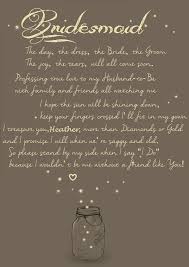 Bridesmaid
The day, the dress, the Bride, the Groom
The joy, the tears, will all come soon.
Professing true love to my Husband-to-Be
with family and friends all watching me
I hope the sun will be shining down,
keep your fingers crossed I'll fit in my gown
I treasure you, Heather, more than Diamonds or Gold
and I promise I will when we're saggy and old.
So please stand by my side when I say "I Do"
because I wouldn't be me without a friend like You!